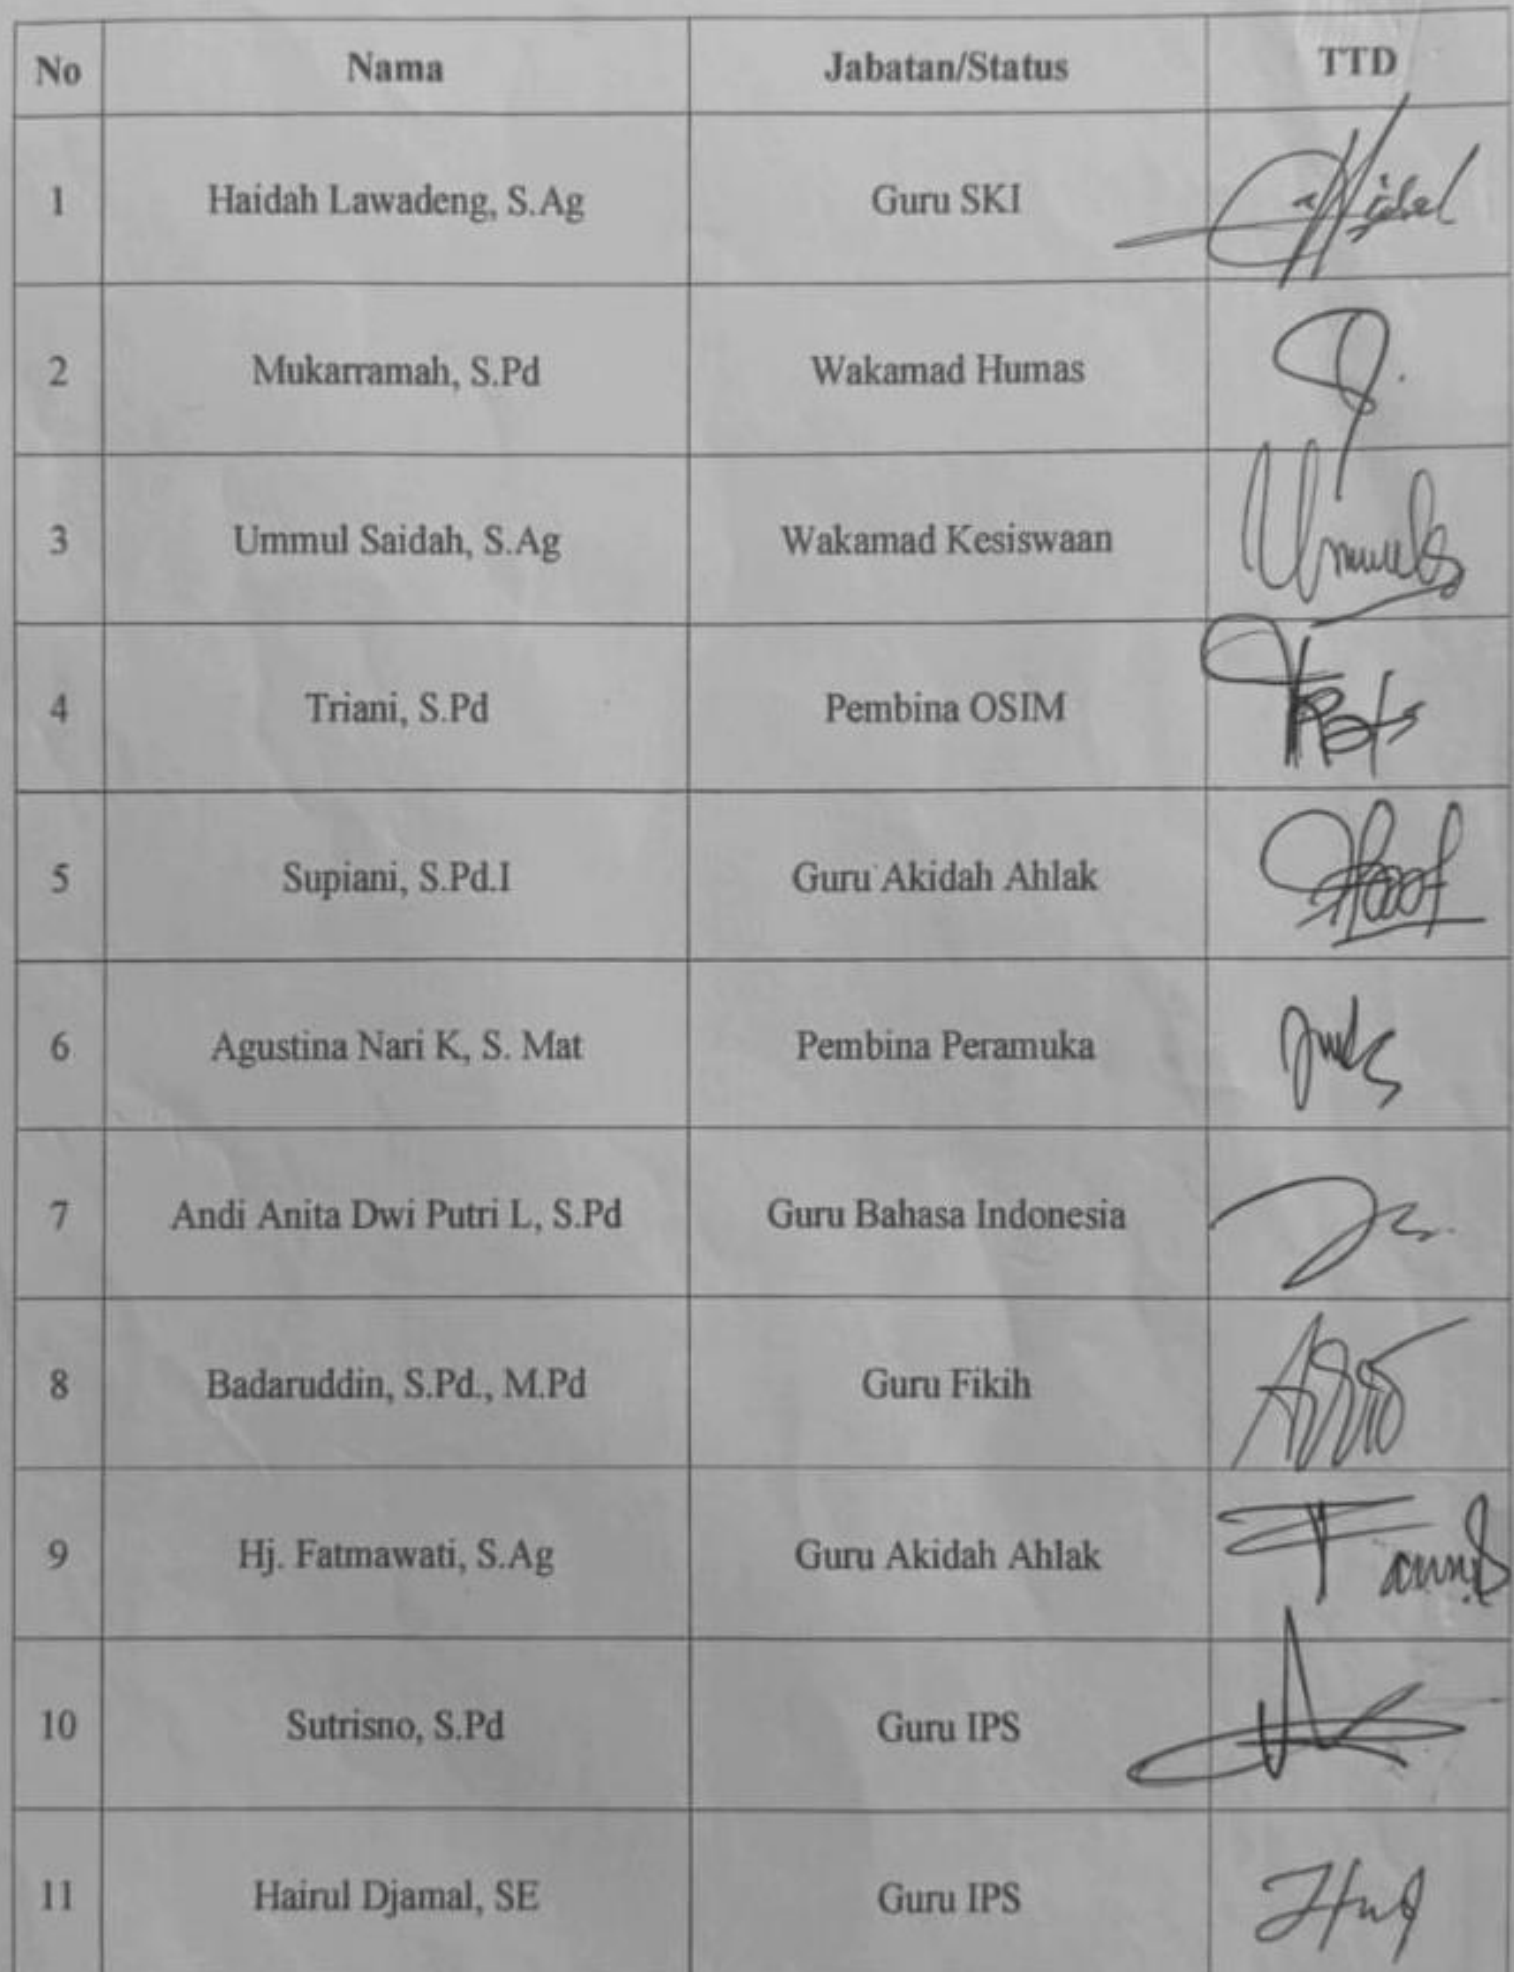 No Nama Jabatan/Status TTD
1 Haidah Lawadeng, S.Ag Guru SKI
2 Mukarramah, S.Pd Wakamad Humas
3 Ummul Saidah, S.Ag Wakamad Kesiswaan
4 Triani, S.Pd Pembina OSIM
5 Supiani, S.Pd.I Guru Akidah Ahlak
6 Agustina Nari K, S. Mat Pembina Peramuka
7 Andi Anita Dwi Putri L, S.Pd Guru Bahasa Indonesia
8 Badaruddin, S.Pd., M.Pd Guru Fikih
9 Hj. Fatmawati, S.Ag Guru Akidah Ahlak
10 Sutrisno, S.Pd Guru IPS
11 Hairul Djamal, SE Guru IPS